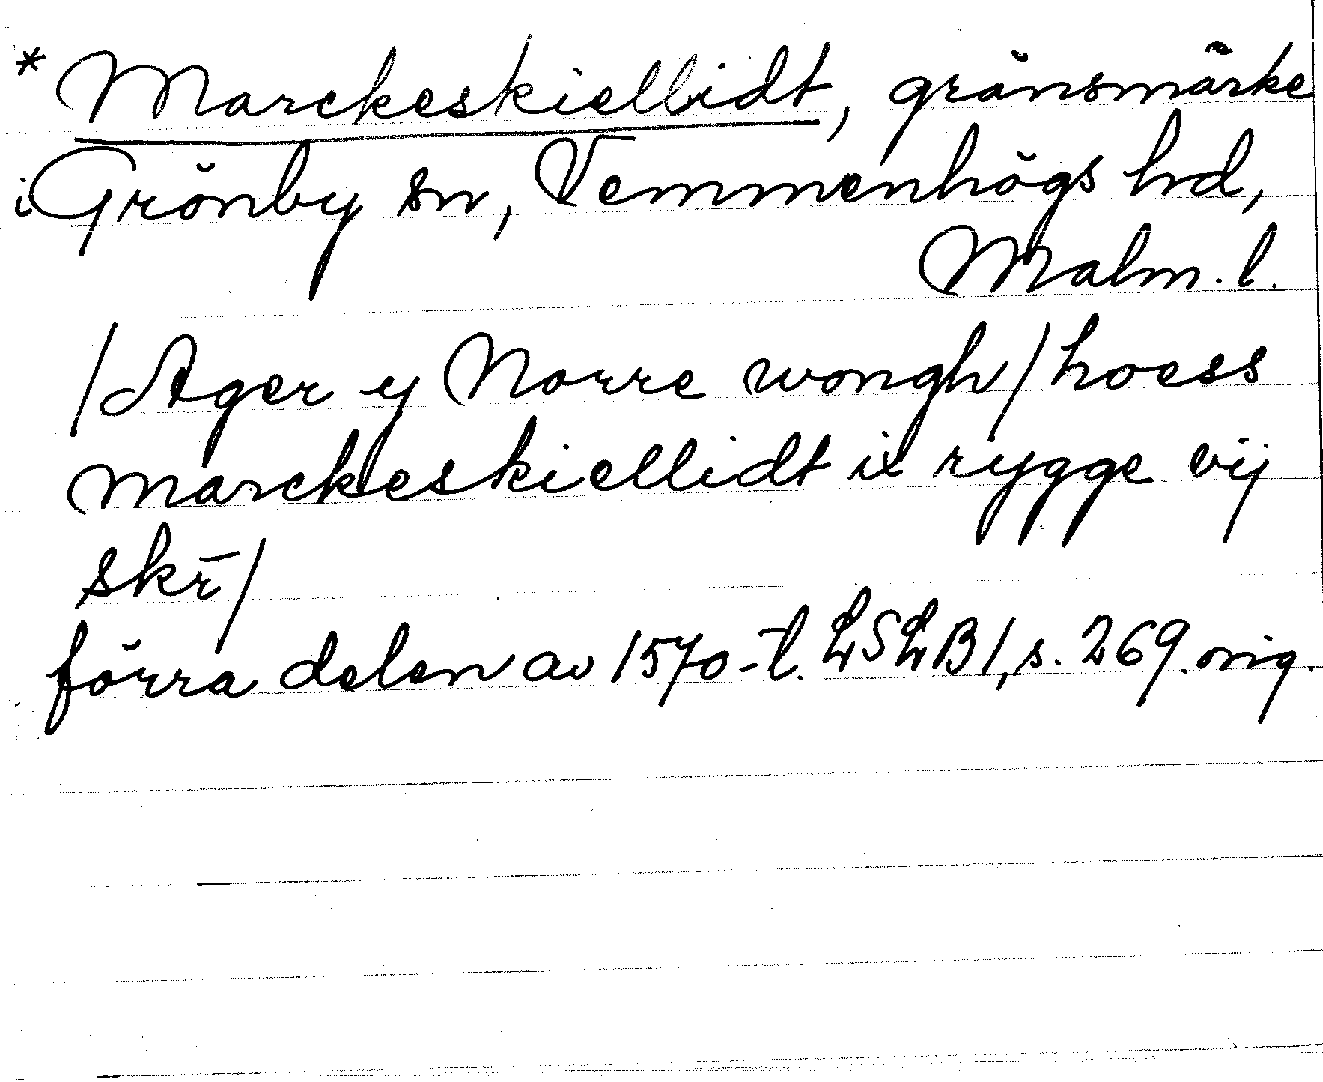 * Marckeskiellidt, gränsmärke
i Grönby sn, Vemmenhögs hd,
Malm. l.
/Ager y Norre wongh/ hoess
Marckeskiellidt ix rygge vij
skr̄/
förra delen av 1570-t. LSLB1, s. 269. orig.